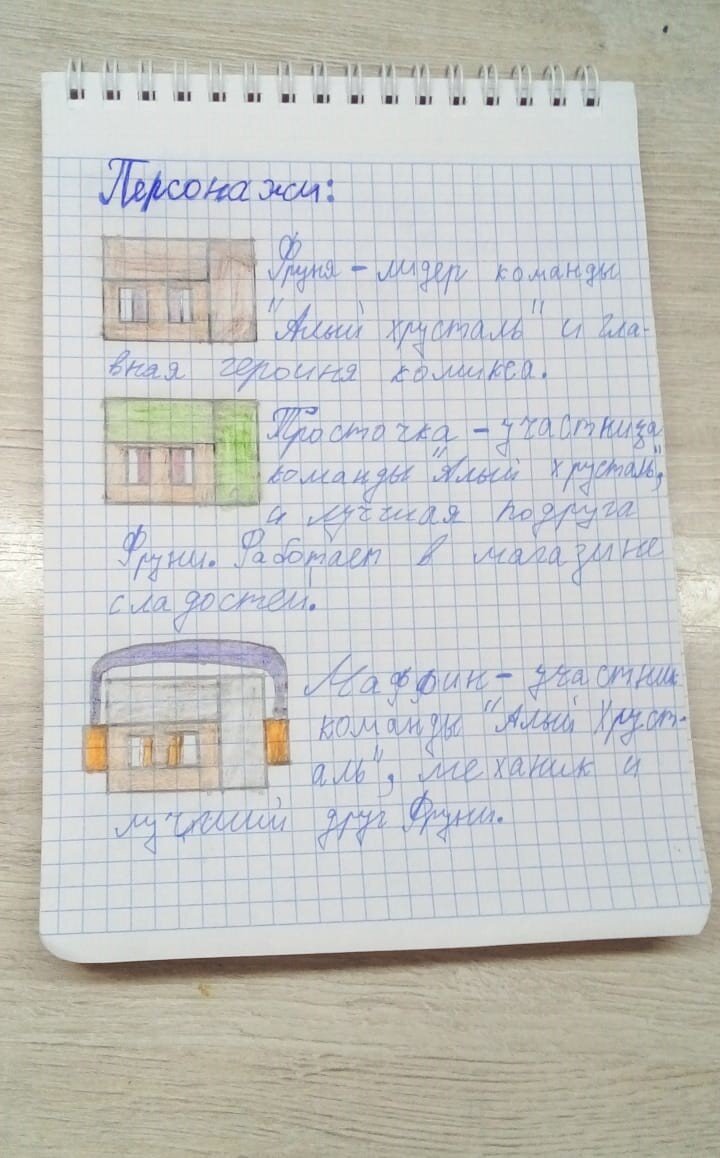 Персонажи:
Фруня - лидер команды
"Алый хрусталь" и гла-
вная героиня комикса.
Тросточка - участница
команды "Алый хрусталь",
и лучшая подруга
Фруни. Работает в магазине
сладостей.
Маффин - участник
команды "Алый Хруст-
аль", механик и
лучший друг Фруни.